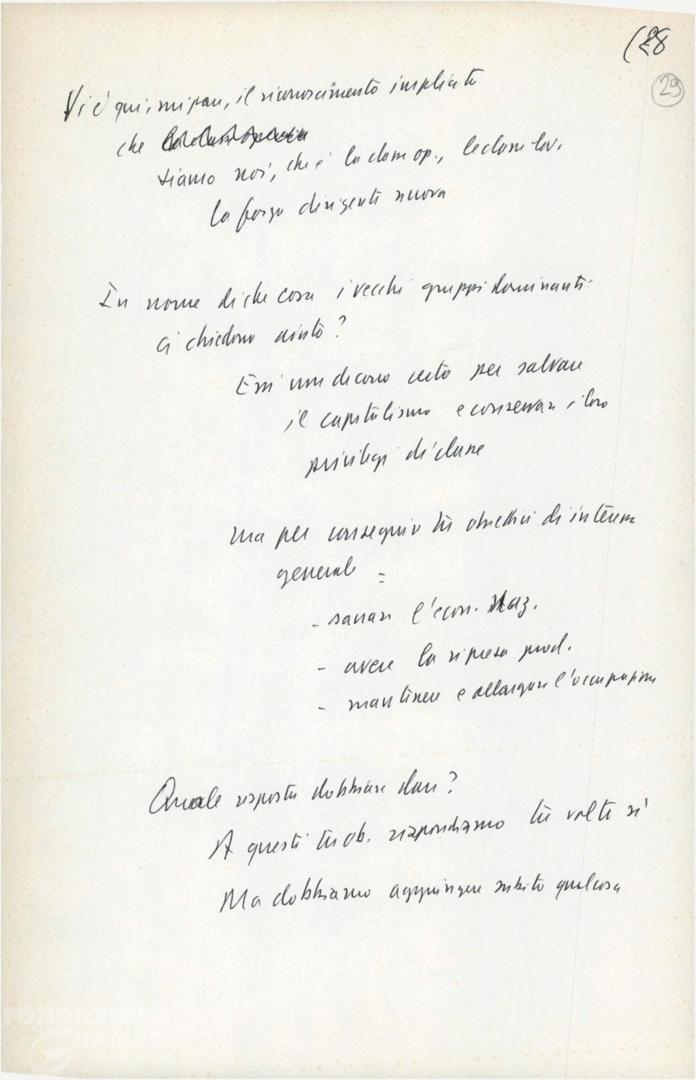 (28
29
Vi è qui, mi pare, il riconoscimento implicito
che la classe operaia
siamo noi, che è la classe op., le classi lav.
la forza dirigente nuova
In nome di che cosa i vecchi gruppi dominanti
ci chiedono aiuto?
Essi non dicono certo per salvare
il capitalismo e conservare i loro
privilegi di classe
ma per conseguire tre obiettivi di interesse
generale =
- sanare l'econ. Naz.
- avere la ripresa prod.
- mantenere e allargare l'occupazione
Quale risposta dobbiamo dare?
A questi tre ob. rispondiamo tre volte sì
Ma dobbiamo aggiungere subito qualcosa
FONDAZIONE